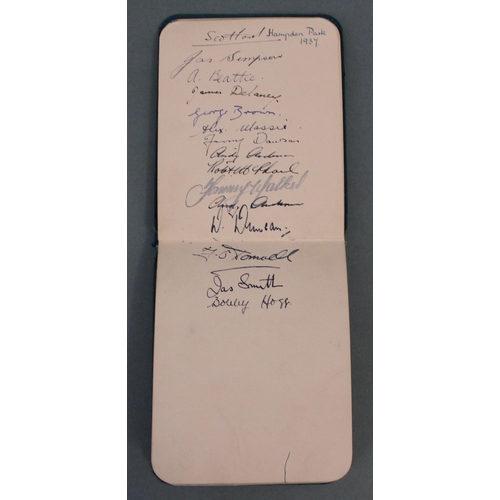 Scotland Hampden Park
1937
Jas Simpson
A. Beattie.
James Delaney
George Brown.
Alex. Massie.
Jerry Dawson
Andy Anderson
Tommy Walker
Andy Anderson
D. Duncan.
Jas Smith
Bobby Hogg